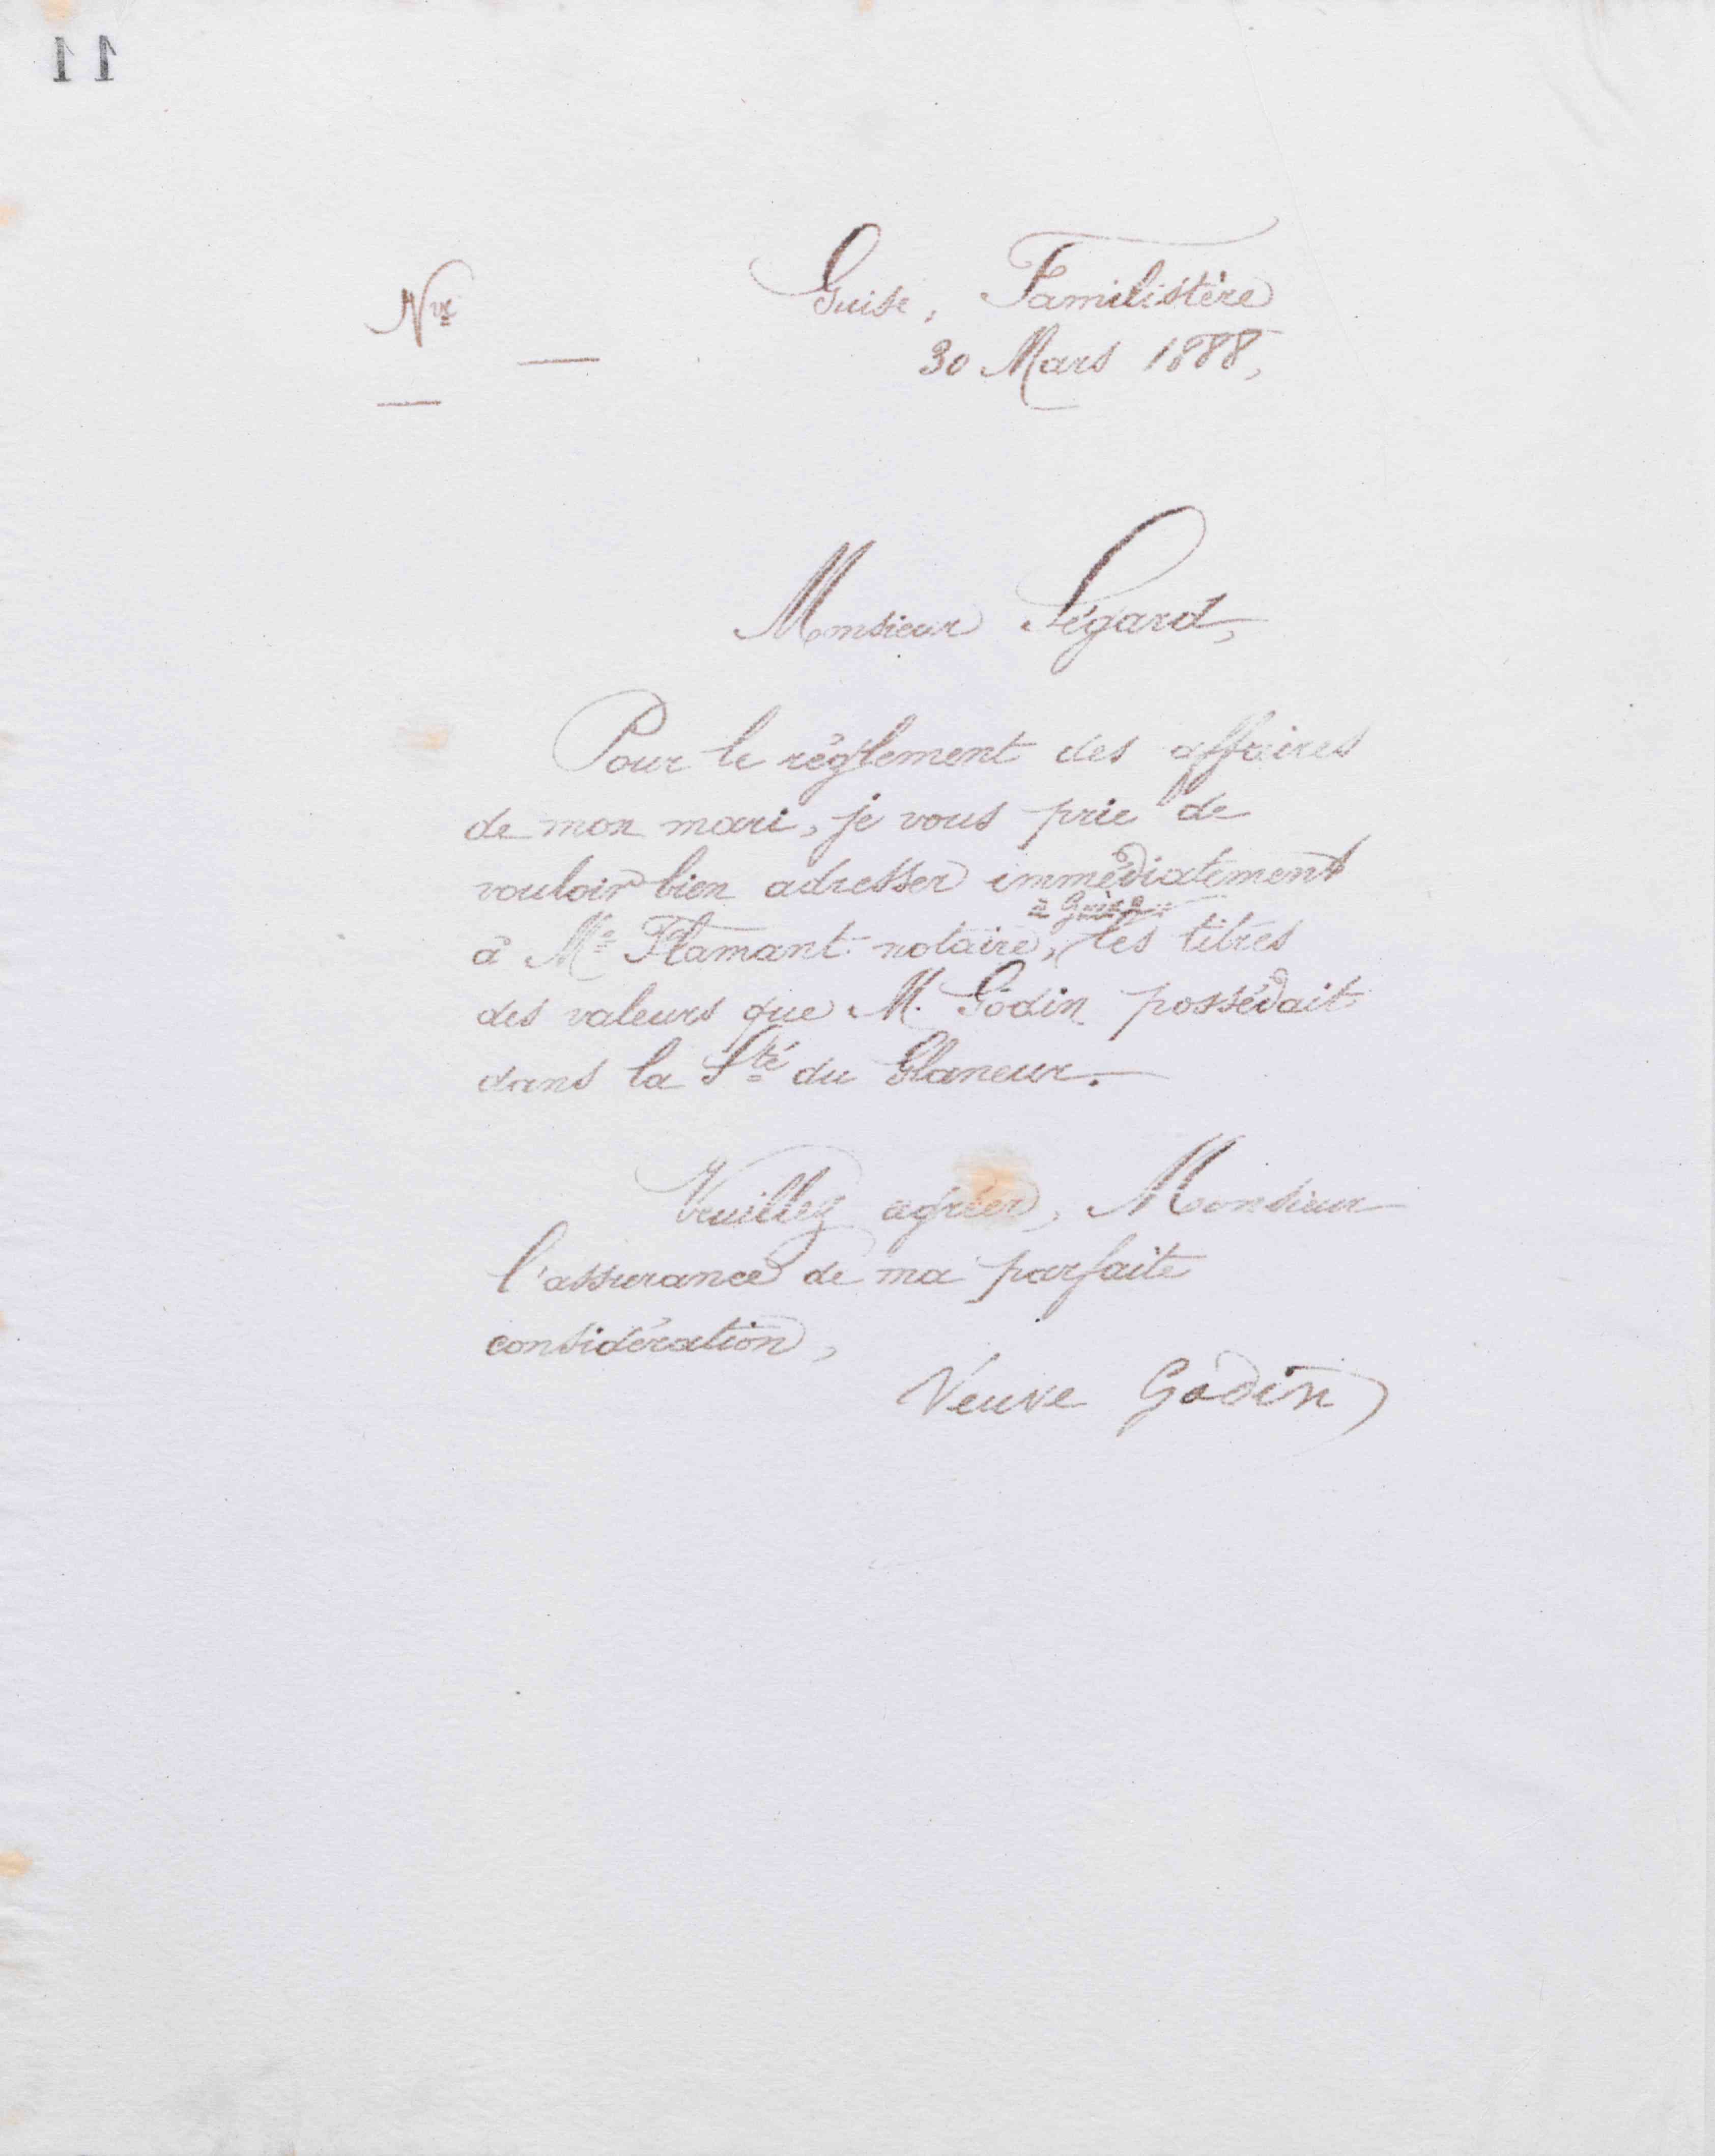 11
Guise, Familistère
Nre
30 Mars 1888,
Monsieur Légard,
Pour le règlement des affaires
de mon mari, je vous prie de
vouloir bien adresser immédiatement
à Guise
à Me Flamant notaire, les titres
des valeurs que M. Godin possédait
dans la Sté du Glaneur.
Veuillez agréer, Monsieur
l'assurance de ma parfaite
considération,
Veuve Godin